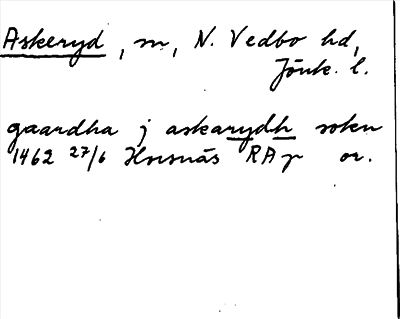 Askeryd, sn, N. Vedbo hd,
Jönk. l.
gaardha j askarydh soken
1462 27/6 Hornsnäs RAp or.